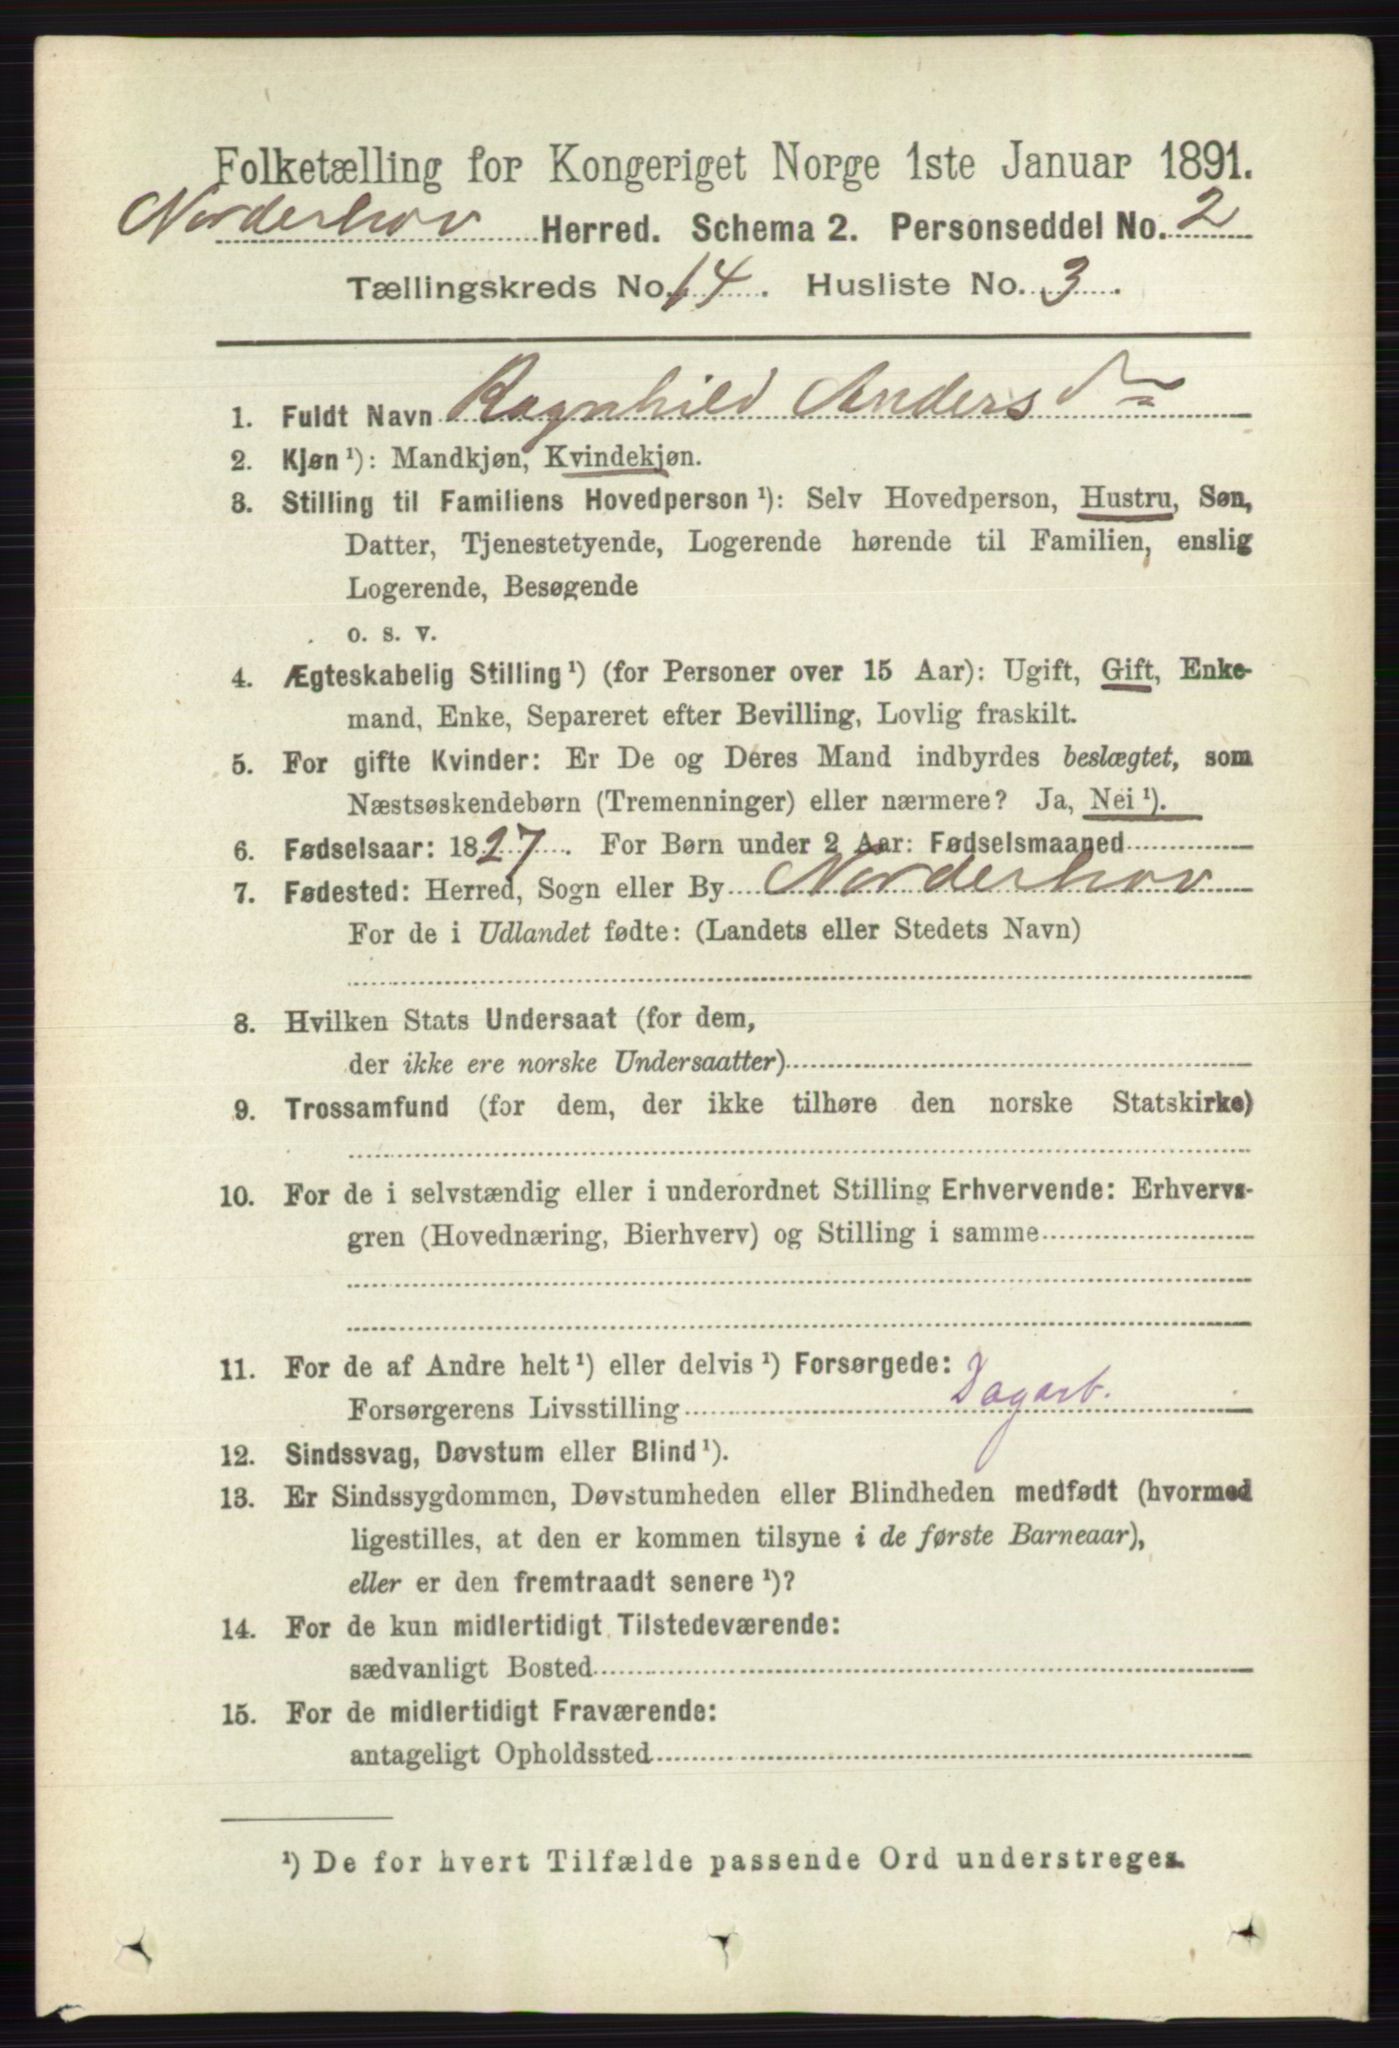 Folketælling for Kongeriget Norge 1ste Januar 1891.
Norderhov Herred. Schema 2. Personseddel No. 2
Tællingskreds No. 14. Husliste No. 3.
1. Fuldt Navn Ragnhild Andersd
2. Kjøn ¹): Mandkjøn, Kvindekjøn.
3. Stilling til Familiens Hovedperson ¹): Selv Hovedperson, Hustru, Søn,
Datter, Tjenestetyende, Logerende hørende til Familien, enslig
Logerende, Besøgende
o. s. v.
4. Ægteskabelig Stilling ¹) (for Personer over 15 Aar): Ugift, Gift, Enke-
mand, Enke, Separeret efter Bevilling, Lovlig fraskilt.
5. For gifte Kvinder: Er De og Deres Mand indbyrdes beslægtet, som
Næstsøskendebørn (Tremenninger) eller nærmere? Ja, Nei ¹).
6. Fødselsaar: 1827. For Børn under 2 Aar: Fødselsmaaned
7. Fødested: Herred, Sogn eller By Norderhov
For de i Udlandet fødte: (Landets eller Stedets Navn)
8. Hvilken Stats Undersaat (for dem,
der ikke ere norske Undersaatter)
9. Trossamfund (for dem, der ikke tilhøre den norske Statskirke)
10. For de i selvstændig eller i underordnet Stilling Erhvervende: Erhvervs-
gren (Hovednæring, Bierhverv) og Stilling i samme
11. For de af Andre helt ¹) eller delvis ¹) Forsørgede:
Forsørgerens Livsstilling Dagarb.
12. Sindssvag, Døvstum eller Blind ¹).
13. Er Sindssygdommen, Døvstumheden eller Blindheden medfødt (hvormed
ligestilles, at den er kommen tilsyne i de første Barneaar),
eller er den fremtraadt senere ¹)?
14. For de kun midlertidigt Tilstedeværende:
sædvanligt Bosted
15. For de midlertidigt Fraværende:
antageligt Opholdssted
¹) De for hvert Tilfælde passende Ord understreges.